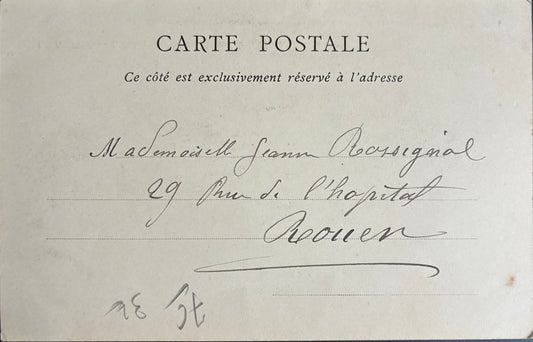 CARTE POSTALE
Ce côté est exclusivement réservé à l'adresse
Mademoiselle Jeanne Rossignol
29 Rue de l'hopital
Rouen